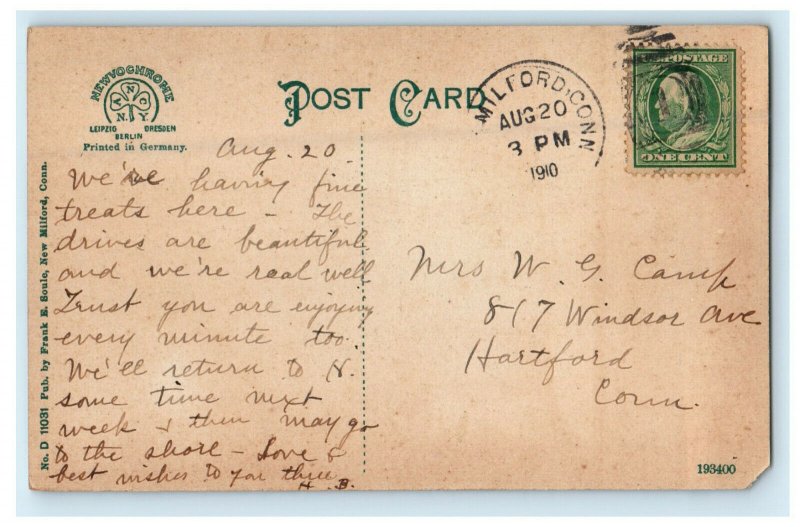 NEWVOCHROME
A N C
N. Y
LEIPZIG DRESDEN
BERLIN
Printed in Germany.
POST CARD
MILFORD, CONN
AUG 20
3 PM
1910
U.S. POSTAGE
ONE CENT
No. D 11031 Pub. by Frank E. Soule, New Milford, Conn.
Aug. 20
We're having fine
treats here - The
drives are beautiful
and we're real well
Trust you are enjoying
every minute too.
We'll return to H.
some time next
week & then may go
to the shore - Love &
best wishes to you three
H. B.
Mrs W. G. Camp
817 Windsor Ave
Hartford
Conn.
193400